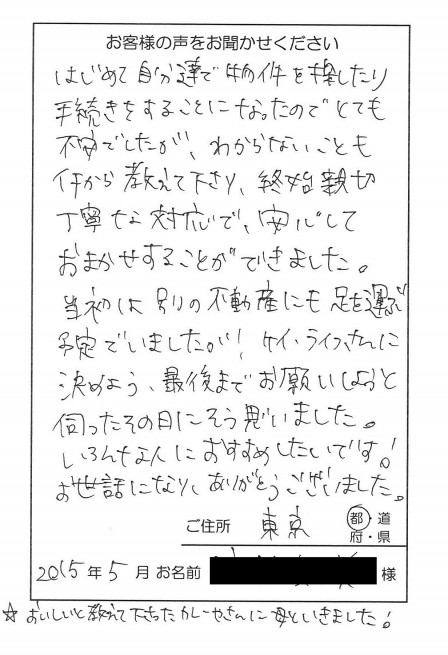 お客様の声をお聞かせください
はじめて自分達で物件を探したり
手続きをすることになったのでとても
不安でしたが、わからないことも
1から教えて下さり、終始親切
丁寧な対応で、安心して
おまかせすることができました。
当初は別の不動産にも足を運ぶ
予定でいましたが！ケイ・ライフさんに
決めよう、最後までお願いしようと
伺ったその日にそう思いました。
いろんな人におすすめしたいです！
お世話になり、ありがとうございました。
ご住所 東京 都・道
府・県
2015年5月 お名前 様
☆おいしいと教えて下さったカレーやさんに母といきました！